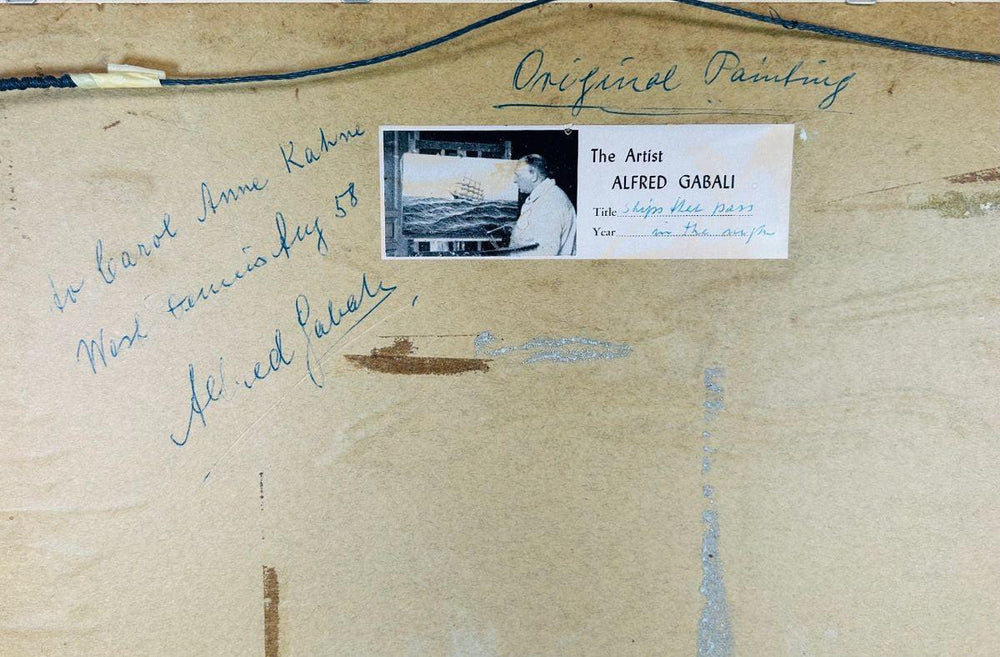 Original Painting
to Carol Anne Kahne
West Dennis Aug 58
Alfred Gabali
The Artist
ALFRED GABALI
Title Ships that pass
Year in the night